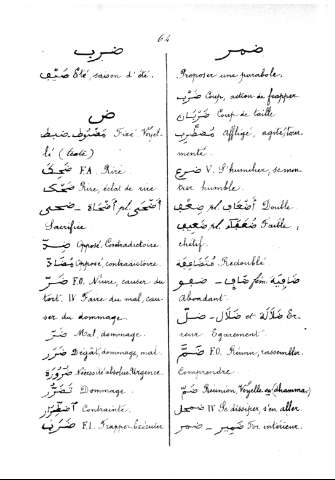 64
ضرب
صَيْف Eté, saison d'été.
ض
مَضْبُوط ـ ضبط Fixé Voyel-
lé (texte)
ضَحِكَ F.A Rire
ضَحْك Rire, éclat de rire
ضحى ـ أَضْحَاة pl. أَضْحَى
Sacrifice
ضِدّ Opposé, Contradictoire
مُضَادّ Opposé, contradictoire
ضَرَّ F.O. Nuire, causer du
tort. IV Faire du mal, cau-
ser du dommage.
ضَرّ Mal, dommage.
ضَرَر Dégât, dommage, mal.
ضَرُورَة Nécessité absolue, Urgence
تَضَرُّر Dommage.
اضْطِرَار Contrainte.
ضَرَبَ F.I. Frapper. Exécuter
ضمر
Proposer une parabole.
ضَرْب Coup, action de frapper
ضَرْبَان Coup de taille
مُضْطَرِب Affligé, agité, tour-
menté.
ضرع V. S'humilier, se mon-
trer humble.
ضِعْف pl. أَضْعَاف Double.
ضَعِيف pl. ضُعَفَاء Faible,
chétif.
Redoublé
ضفو ـ ضَافٍ fém. ضَافِيَة
Abondant
ضلّ ـ ضَلَال et ضَلَالَة Er-
reur Egarement.
ضَمَّ F.O. Réunir, rassembler.
Comprendre
ضَمّ Réunion, Voyelle (dhamma)
ضمحل IV Se dissiper, s'en aller.
ضمر ـ ضَمِير For intérieur.